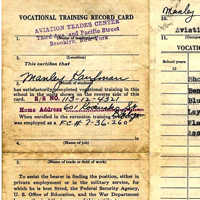 VOCATIONAL TRAINING RECORD CARD
AVIATION TRADES CENTER
Third Ave. and Pacific Street
Brooklyn, New York
This certifies that
Manley
(Name of student)
has satisfactorily completed vocational training in this
school in the units shown on the reverse side of this
card. S/S NO. 113-12-4321
Home Address
When enrolled in the extension training program
was employed as a FC# 7-36-260
(Name of job)
(Name of trade or field of work)
To assist the bearer in finding the position, either in
private employment or in the military service, for
which he is best fitted, the Federal Security Agency,
U. S. Office of Education, and the War Department
Manley
Aviati
VOCATION
Sho
Ben
Blu
Lay
Ely
Ass